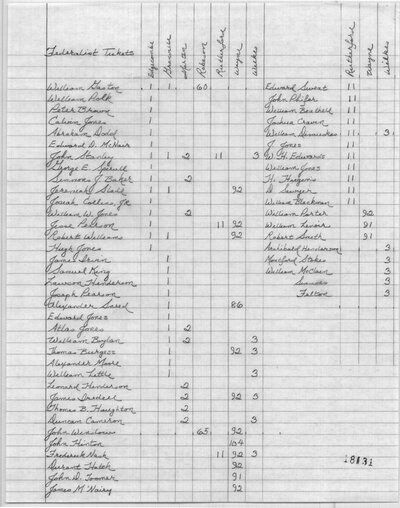 Federalist Tickets Edgecombe Granville Martin Robeson Rutherford Wayne Wilkes Rutherford Wayne Wilkes
William Gaston 1 1 60 Edward Sweat 11
William Polk 1 John Phifer 11
Peter Brown 1 William 11
Calvin Jones 1 Joshua Craven 11
Abraham Dodd 1 William 11 3
Edward D. McNair 1 J. Jones 11
John Stanley 1 2 11 3 W. H. Edwards 11
George E. Spruill 1 William Jones 11
Simmons J. Baker 1 2 H. 11
Jeremiah Slade 1 1 92 D. Sawyer 11
Josiah Collins, Jr. 1 William Blackman 11
William W. Jones 1 2 William Porter 92
Jesse Pearson 1 11 92 William Lenoir 91
Robert Williams 1 1 92 Robert Smith 91
Hugh Jones 1 Archibald Henderson 3
James Irwin 1 Montford Stokes 3
Samuel King 1 William McClain 3
Lawson Henderson 1 3
Joseph Pearson 1 Felton 3
Alexander Sneed 86
Edward Jones 1
Atlas Jones 1 2
William Boylan 2 3
Thomas Burgess 1 92 3
Alexander Moore 1
William Little 1 3
Leonard Henderson 2
James Iredell 2 92 3
Thomas B. Haughton 2
Duncan Cameron 2 3
John Winslow 65 92
John Hinton 104
Frederick Nash 11 92 3
Durant Hatch 92
John D. Toomer 91
James McNairy 92
18131